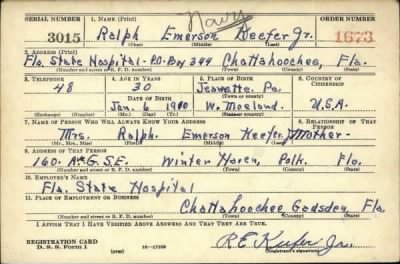 Navy
SERIAL NUMBER 1. NAME (Print) ORDER NUMBER
3015 Ralph Emerson Keefer Jr. 1673
(First) (Middle) (Last)
2. ADDRESS (Print)
Fla. State Hospital-P.O. Box 344 Chattahoochee, Fla.
(Number and street or R. F. D. number) (Town) (County) (State)
3. TELEPHONE 4. AGE IN YEARS 5. PLACE OF BIRTH 6. COUNTRY OF CITIZENSHIP
48 30 Jeannette Pa.
DATE OF BIRTH (Town or county)
Jan. 6 W. Moland U.S.A.
(Mo.) (Day) (Yr.) (State or country)
7. NAME OF PERSON WHO WILL ALWAYS KNOW YOUR ADDRESS 8. RELATIONSHIP OF THAT PERSON
Mrs. Ralph Emerson Keefer Mother
(Mr., Mrs., Miss) (First) (Middle) (Last)
9. ADDRESS OF THAT PERSON
160 Winter Haven, Polk. Fla.
(Number and street or R. F. D. number) (Town) (County) (State)
10. EMPLOYER'S NAME
Fla. State Hospital
11. PLACE OF EMPLOYMENT OR BUSINESS
Chattahoochee Gadsden, Fla.
(Number and street or R. F. D. number) (Town) (County) (State)
I AFFIRM THAT I HAVE VERIFIED ABOVE ANSWERS AND THAT THEY ARE TRUE.
REGISTRATION CARD
D. S. S. Form 1 (over) 16-17105 R E Keefer Jr.
(Registrant's signature)